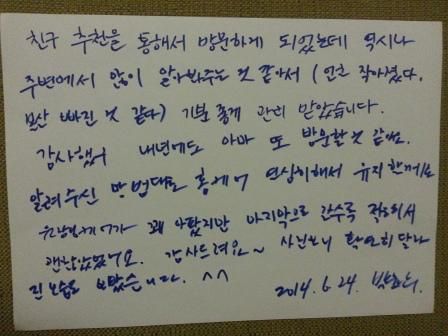 친구 추천을 통해서 방문하게 되었는데 역시나
주변에서 많이 알아봐주는 것 같아서 (얼굴 작아졌다.
살 빠진 것 같다) 기분 좋게 관리 받았습니다.
감사했어 내년에도 아마 또 방문할 것 같네요.
알려주신 방법대로 홈케어 열심히해서 유지할게요
꽤 아팠지만 마지막으로 갈수록 적응되서
괜찮았었어요. 감사드려요~ 사진보니 확연히 달라
진 모습을 보았습니다. ^^
2014. 6. 24.